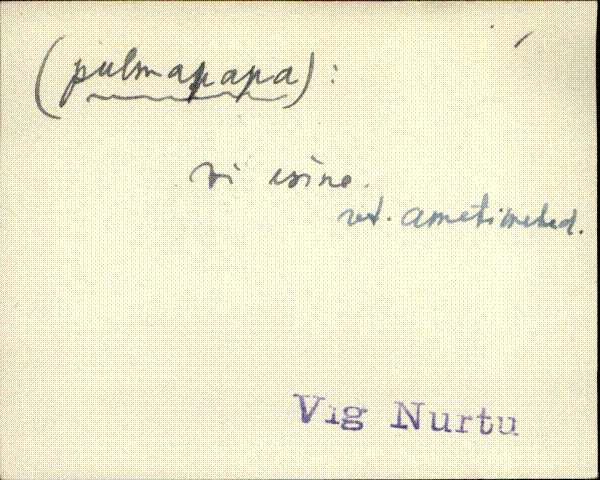 (pulmapapa):
ei esine.
vt. ametimehed.
Vig Nurtu